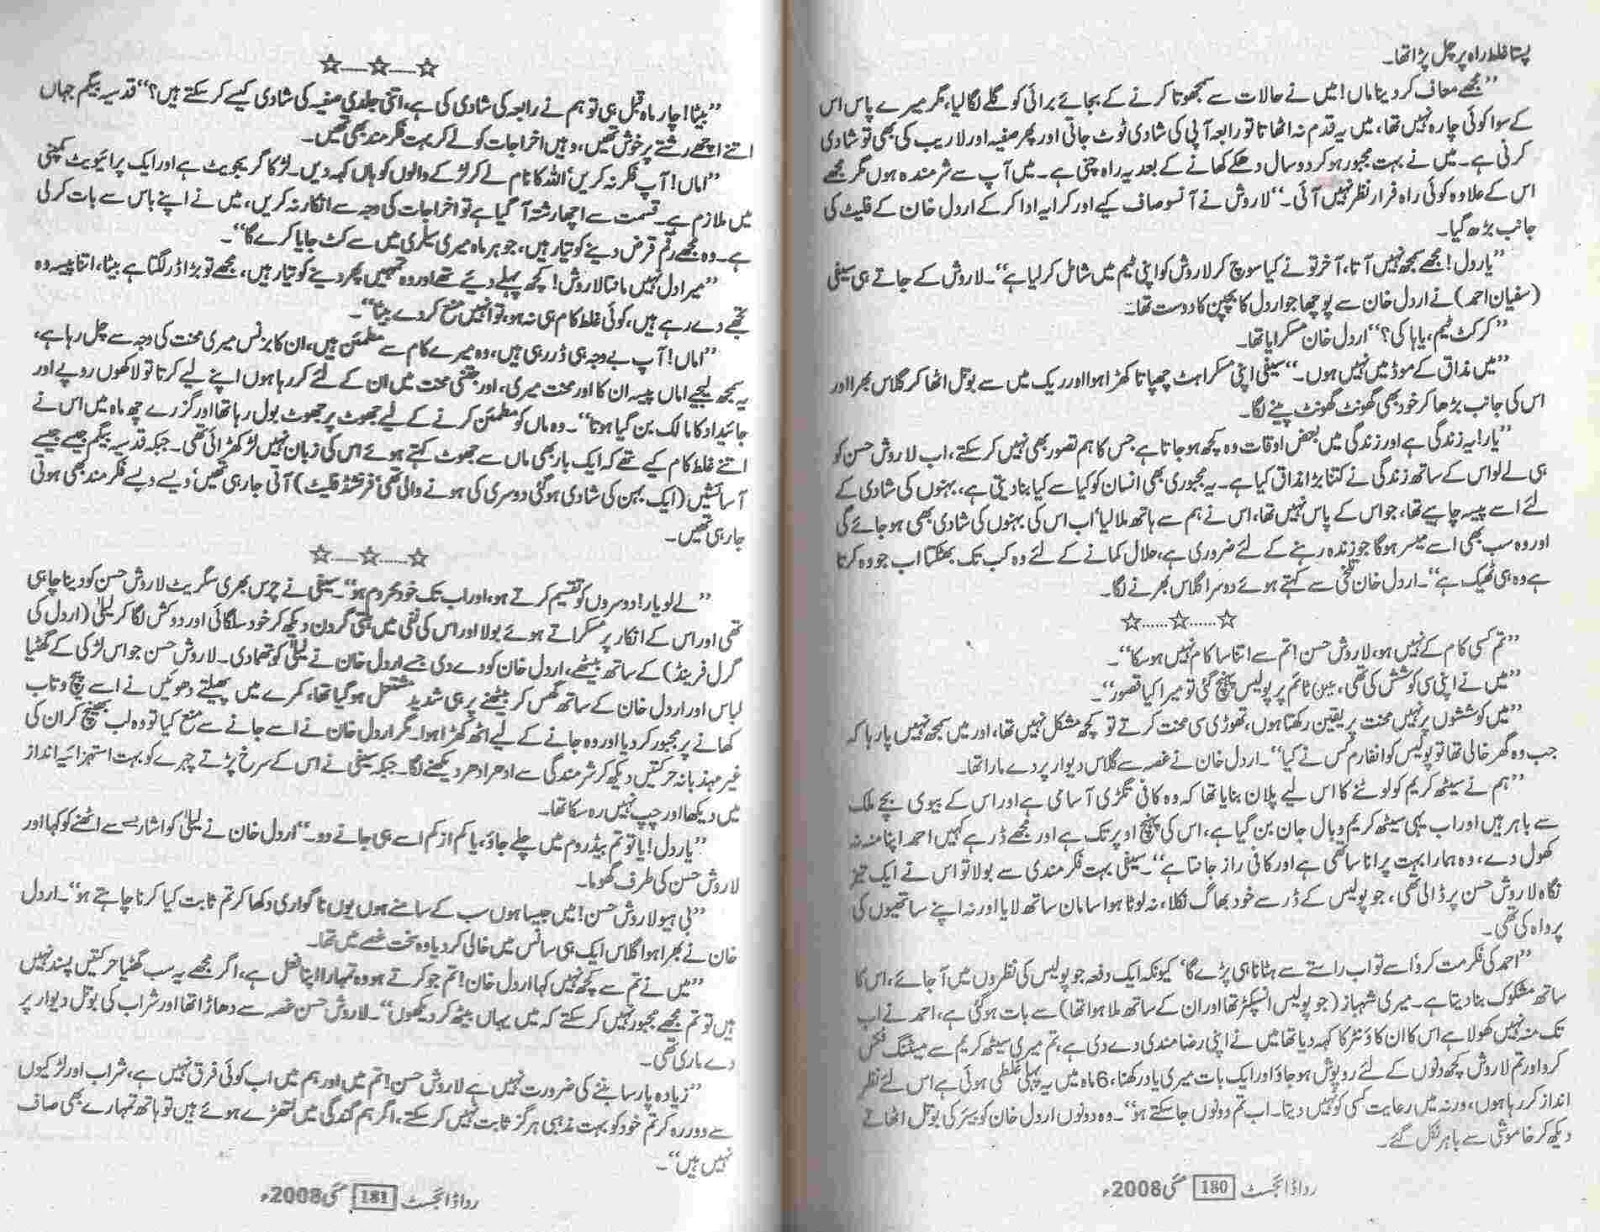 پستا غلط راہ پر چل پڑا تھا۔
”مجھے معاف کر دینا ماں! میں نے حالات سے سمجھوتا کرنے کے بجائے برائی کو گلے لگا لیا، مگر میرے پاس اس
کے سوا کوئی چارہ نہیں تھا، میں یہ قدم نہ اٹھاتا تو رابعہ آپی کی شادی ٹوٹ جاتی اور پھر صفیہ اور لاریب کی بھی تو شادی
کرنی ہے۔ میں نے بہت مجبور ہو کر دو سال دھکے کھانے کے بعد یہ راہ چنی ہے۔ میں آپ سے شرمندہ ہوں مگر مجھے
اس کے علاوہ کوئی راہ فرار نظر نہیں آئی۔“ لاروش نے آنسو صاف کیے اور کرایہ ادا کر کے اردل خان کے فلیٹ کی
جانب بڑھ گیا۔
”یار دل! مجھے سمجھ نہیں آتا، آخر تو نے کیا سوچ کر لاروش کو اپنی ٹیم میں شامل کر لیا ہے“۔ لاروش کے جاتے ہی سیفی
(سفیان احمد) نے اردل خان سے پوچھا جو اردل کا بچپن کا دوست تھا۔
”کرکٹ ٹیم، یا ہاکی؟“ اردل خان مسکرایا تھا۔
”میں مذاق کے موڈ میں نہیں ہوں۔“ سیفی اپنی مسکراہٹ چھپاتا کھڑا ہوا اور ریک میں سے بوتل اٹھا کر گلاس بھرا اور
اس کی جانب بڑھا کر خود بھی گھونٹ گھونٹ پینے لگا۔
”یار! یہ زندگی ہے اور زندگی میں بعض اوقات وہ کچھ ہو جاتا ہے جس کا ہم تصور بھی نہیں کر سکتے، اب لاروش حسن کو
ہی لے لو اس کے ساتھ زندگی نے کتنا بڑا مذاق کیا ہے۔ یہ مجبوری بھی انسان کو کیا سے کیا بنا دیتی ہے، بہنوں کی شادی کے
لئے اسے پیسہ چاہیے تھا، جو اس کے پاس نہیں تھا، اس نے ہم سے ہاتھ ملا لیا اب اس کی بہنوں کی شادی بھی ہو جائے گی
اور وہ سب بھی اسے میسر ہوگا جو زندہ رہنے کے لئے ضروری ہے، حلال کمانے کے لئے وہ کب تک بھٹکتا اب جو وہ کرتا
ہے وہ ہی ٹھیک ہے“۔ اردل خان تلخی سے کہتے ہوئے دوسرا گلاس بھرنے لگا۔
☆......☆......☆
”تم کسی کام کے نہیں ہو، لاروش حسن! تم سے اتنا سا کام نہیں ہو سکا“۔
”میں نے اپنی سی کوشش کی تھی، عین ٹائم پر پولیس پہنچ گئی تو میرا کیا قصور“۔
”میں کوششوں پر نہیں محنت پر یقین رکھتا ہوں، تھوڑی سی محنت کرتے تو کچھ مشکل نہیں تھا، اور میں سمجھ نہیں پا رہا کہ
جب وہ گھر خالی تھا تو پولیس کو انفارم کس نے کیا“۔ اردل خان نے غصہ سے گلاس دیوار پر دے مارا تھا۔
”ہم نے سیٹھ کریم کو لوٹنے کا اس لیے پلان بنایا تھا کہ وہ کافی تگڑی آسامی ہے اور اس کے بیوی بچے ملک
سے باہر ہیں اور اب یہی سیٹھ کریم وبال جان بن گیا ہے، اس کی پہنچ اوپر تک ہے اور مجھے ڈر ہے کہیں احمد اپنا منہ نہ
کھول دے، وہ ہمارا بہت پرانا ساتھی ہے اور کافی راز جانتا ہے“۔ سیفی بہت فکر مندی سے بولا تو اس نے ایک تیز
نگاہ لاروش حسن پر ڈالی تھی، جو پولیس کے ڈر سے خود بھاگ نکلا، نہ لوٹا ہوا سامان ساتھ لایا اور نہ اپنے ساتھیوں کی
پرواہ کی تھی۔
”احمد کی فکر مت کرو اسے تو اب راستے سے ہٹانا ہی پڑے گا کیونکہ ایک دفعہ جو پولیس کی نظروں میں آ جائے، اس کا
ساتھ مشکوک بنا دیتا ہے۔ میری شہباز (جو پولیس انسپکٹر تھا اور ان کے ساتھ ملا ہوا تھا) سے بات ہو گئی ہے، احمد نے اب
تک منہ نہیں کھولا ہے اس کا ان کاؤنٹر کا کہہ دیا تھا میں نے اپنی رضا مندی دے دی ہے، تم میری سیٹھ کریم سے میٹنگ فکس
کرو اور تم لاروش کچھ دنوں کے لئے روپوش ہو جاؤ اور ایک بات میری یاد رکھنا، 6 ماہ میں یہ پہلی غلطی ہوئی ہے اس لئے نظر
انداز کر رہا ہوں، ورنہ میں رعایت کسی کو نہیں دیتا۔ اب تم دونوں جا سکتے ہو“۔ وہ دونوں اردل خان کو بیئر کی بوتل اٹھاتے
دیکھ کر خاموشی سے باہر نکل گئے۔
ردا ڈائجسٹ 180 مئی 2008ء
☆......☆......☆
”بیٹا! چار ماہ قبل ہی تو ہم نے رابعہ کی شادی کی ہے، اتنی جلدی صفیہ کی شادی کیسے کر سکتے ہیں؟“ قدسیہ بیگم جہاں
اتنے اچھے رشتے پر خوش تھیں، وہیں اخراجات کو لے کر بہت فکر مند بھی تھیں۔
”اماں! آپ فکر نہ کریں، اللہ کا نام لے کر لڑکے والوں کو ہاں کہہ دیں۔ لڑکا گریجویٹ ہے اور ایک پرائیویٹ کمپنی
میں ملازم ہے۔ قسمت سے اچھا رشتہ آ گیا ہے تو اخراجات کی وجہ سے انکار نہ کریں، میں نے اپنے باس سے بات کر لی
ہے۔ وہ مجھے رقم قرض دینے کو تیار ہیں، جو ہر ماہ میری سیلری میں سے کٹ جایا کرے گا“۔
”میرا دل نہیں مانتا لاروش! کچھ پہلے دیئے تھے اور وہ تمہیں پھر دینے کو تیار ہیں، مجھے تو بڑا ڈر لگتا ہے بیٹا، اتنا پیسہ وہ
تجھے دے رہے ہیں، کوئی غلط کام ہی نہ ہو، تو انہیں منع کر دے بیٹا“۔
”اماں! آپ بے وجہ ہی ڈر رہی ہیں، وہ میرے کام سے مطمئن ہیں، ان کا بزنس میری محنت کی وجہ سے چل رہا ہے،
یہ سمجھ لیجیے اماں پیسہ ان کا اور محنت میری، اور جتنی محنت میں ان کے لئے کر رہا ہوں اپنے لیے کرتا تو لاکھوں روپے اور
جائیداد کا مالک بن گیا ہوتا“۔ وہ ماں کو مطمئن کرنے کے لیے جھوٹ پر جھوٹ بول رہا تھا اور گزرے چھ ماہ میں اس نے
اتنے غلط کام کیے تھے کہ ایک بار بھی ماں سے جھوٹ کہتے ہوئے اس کی زبان نہیں لڑکھڑائی تھی۔ جبکہ قدسیہ بیگم جیسے جیسے
آسائشیں (ایک بہن کی شادی ہو گئی دوسری کی ہونے والی تھی، فرنشڈ فلیٹ) آتی جا رہی تھیں ویسے ویسے فکر مند بھی ہوتی
جا رہی تھیں۔
☆......☆......☆
”لے لو یار! دوسروں کو تقسیم کرتے ہو، اور اب تک خود محروم ہو“۔ سیفی نے چرس بھری سگریٹ لاروش حسن کو دینا چاہی
تھی اور اس کے انکار پر مسکراتے ہوئے بولا اور اس کی نفی میں ہلتی گردن دیکھ کر خود سلگائی اور دو کش لگا کر لیلیٰ (اردل کی
گرل فرینڈ) کے ساتھ بیٹھے، اردل خان کو دے دی جسے اردل خان نے لیلیٰ کو تھما دی۔ لاروش حسن جو اس لڑکی کے گھٹیا
لباس اور اردل خان کے ساتھ گھس کر بیٹھنے پر ہی شدید مشتعل ہو گیا تھا، کمرے میں پھیلتے دھوئیں نے اسے پیچ و تاب
کھانے پر مجبور کر دیا اور وہ جانے کے لیے اٹھ کھڑا ہوا۔ مگر اردل خان نے اسے جانے سے منع کیا تو وہ لب بھینچ کر ان کی
غیر مہذبانہ حرکتیں دیکھ کر شرمندگی سے ادھر ادھر دیکھنے لگا۔ جبکہ سیفی نے اس کے سرخ پڑتے چہرے کو بہت استہزائیہ انداز
میں دیکھا اور چپ نہیں رہ سکا تھا۔
”یار دل! یا تو تم بیڈ روم میں چلے جاؤ، یا کم از کم اسے ہی جانے دو۔“ اردل خان نے لیلیٰ کو اشارے سے اٹھنے کو کہا اور
لاروش حسن کی طرف گھوما۔
”بی ہیو لاروش حسن! میں جیسا ہوں سب کے سامنے ہوں یوں ناگواری دکھا کر تم ثابت کیا کرنا چاہتے ہو“۔ اردل
خان نے بھرا ہوا گلاس ایک ہی سانس میں خالی کر دیا وہ سخت غصے میں تھا۔
”میں نے تم سے کچھ نہیں کہا اردل خان! تم جو کرتے ہو وہ تمہارا اپنا فعل ہے، اگر مجھے یہ سب گھٹیا حرکتیں پسند نہیں
ہیں تو تم مجھے مجبور نہیں کر سکتے کہ میں یہاں بیٹھ کر دیکھوں“۔ لاروش حسن غصہ سے دھاڑا تھا اور شراب کی بوتل دیوار پر
دے ماری تھی۔
”زیادہ پارسا بننے کی ضرورت نہیں ہے لاروش حسن! تم میں اور ہم میں اب کوئی فرق نہیں ہے، شراب اور لڑکیوں
سے دور رہ کر تم خود کو بہت مذہبی ہرگز ثابت نہیں کر سکتے، اگر ہم گندگی میں لتھڑے ہوئے ہیں تو ہاتھ تمہارے بھی صاف
نہیں ہیں“۔
ردا ڈائجسٹ 181 مئی 2008ء